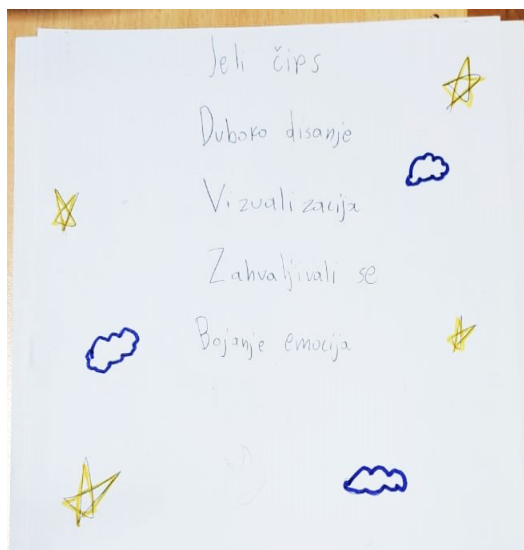 Jeli čips
Duboko disanje
Vizualizacija
Zahvaljivali se
Bojanje emocija